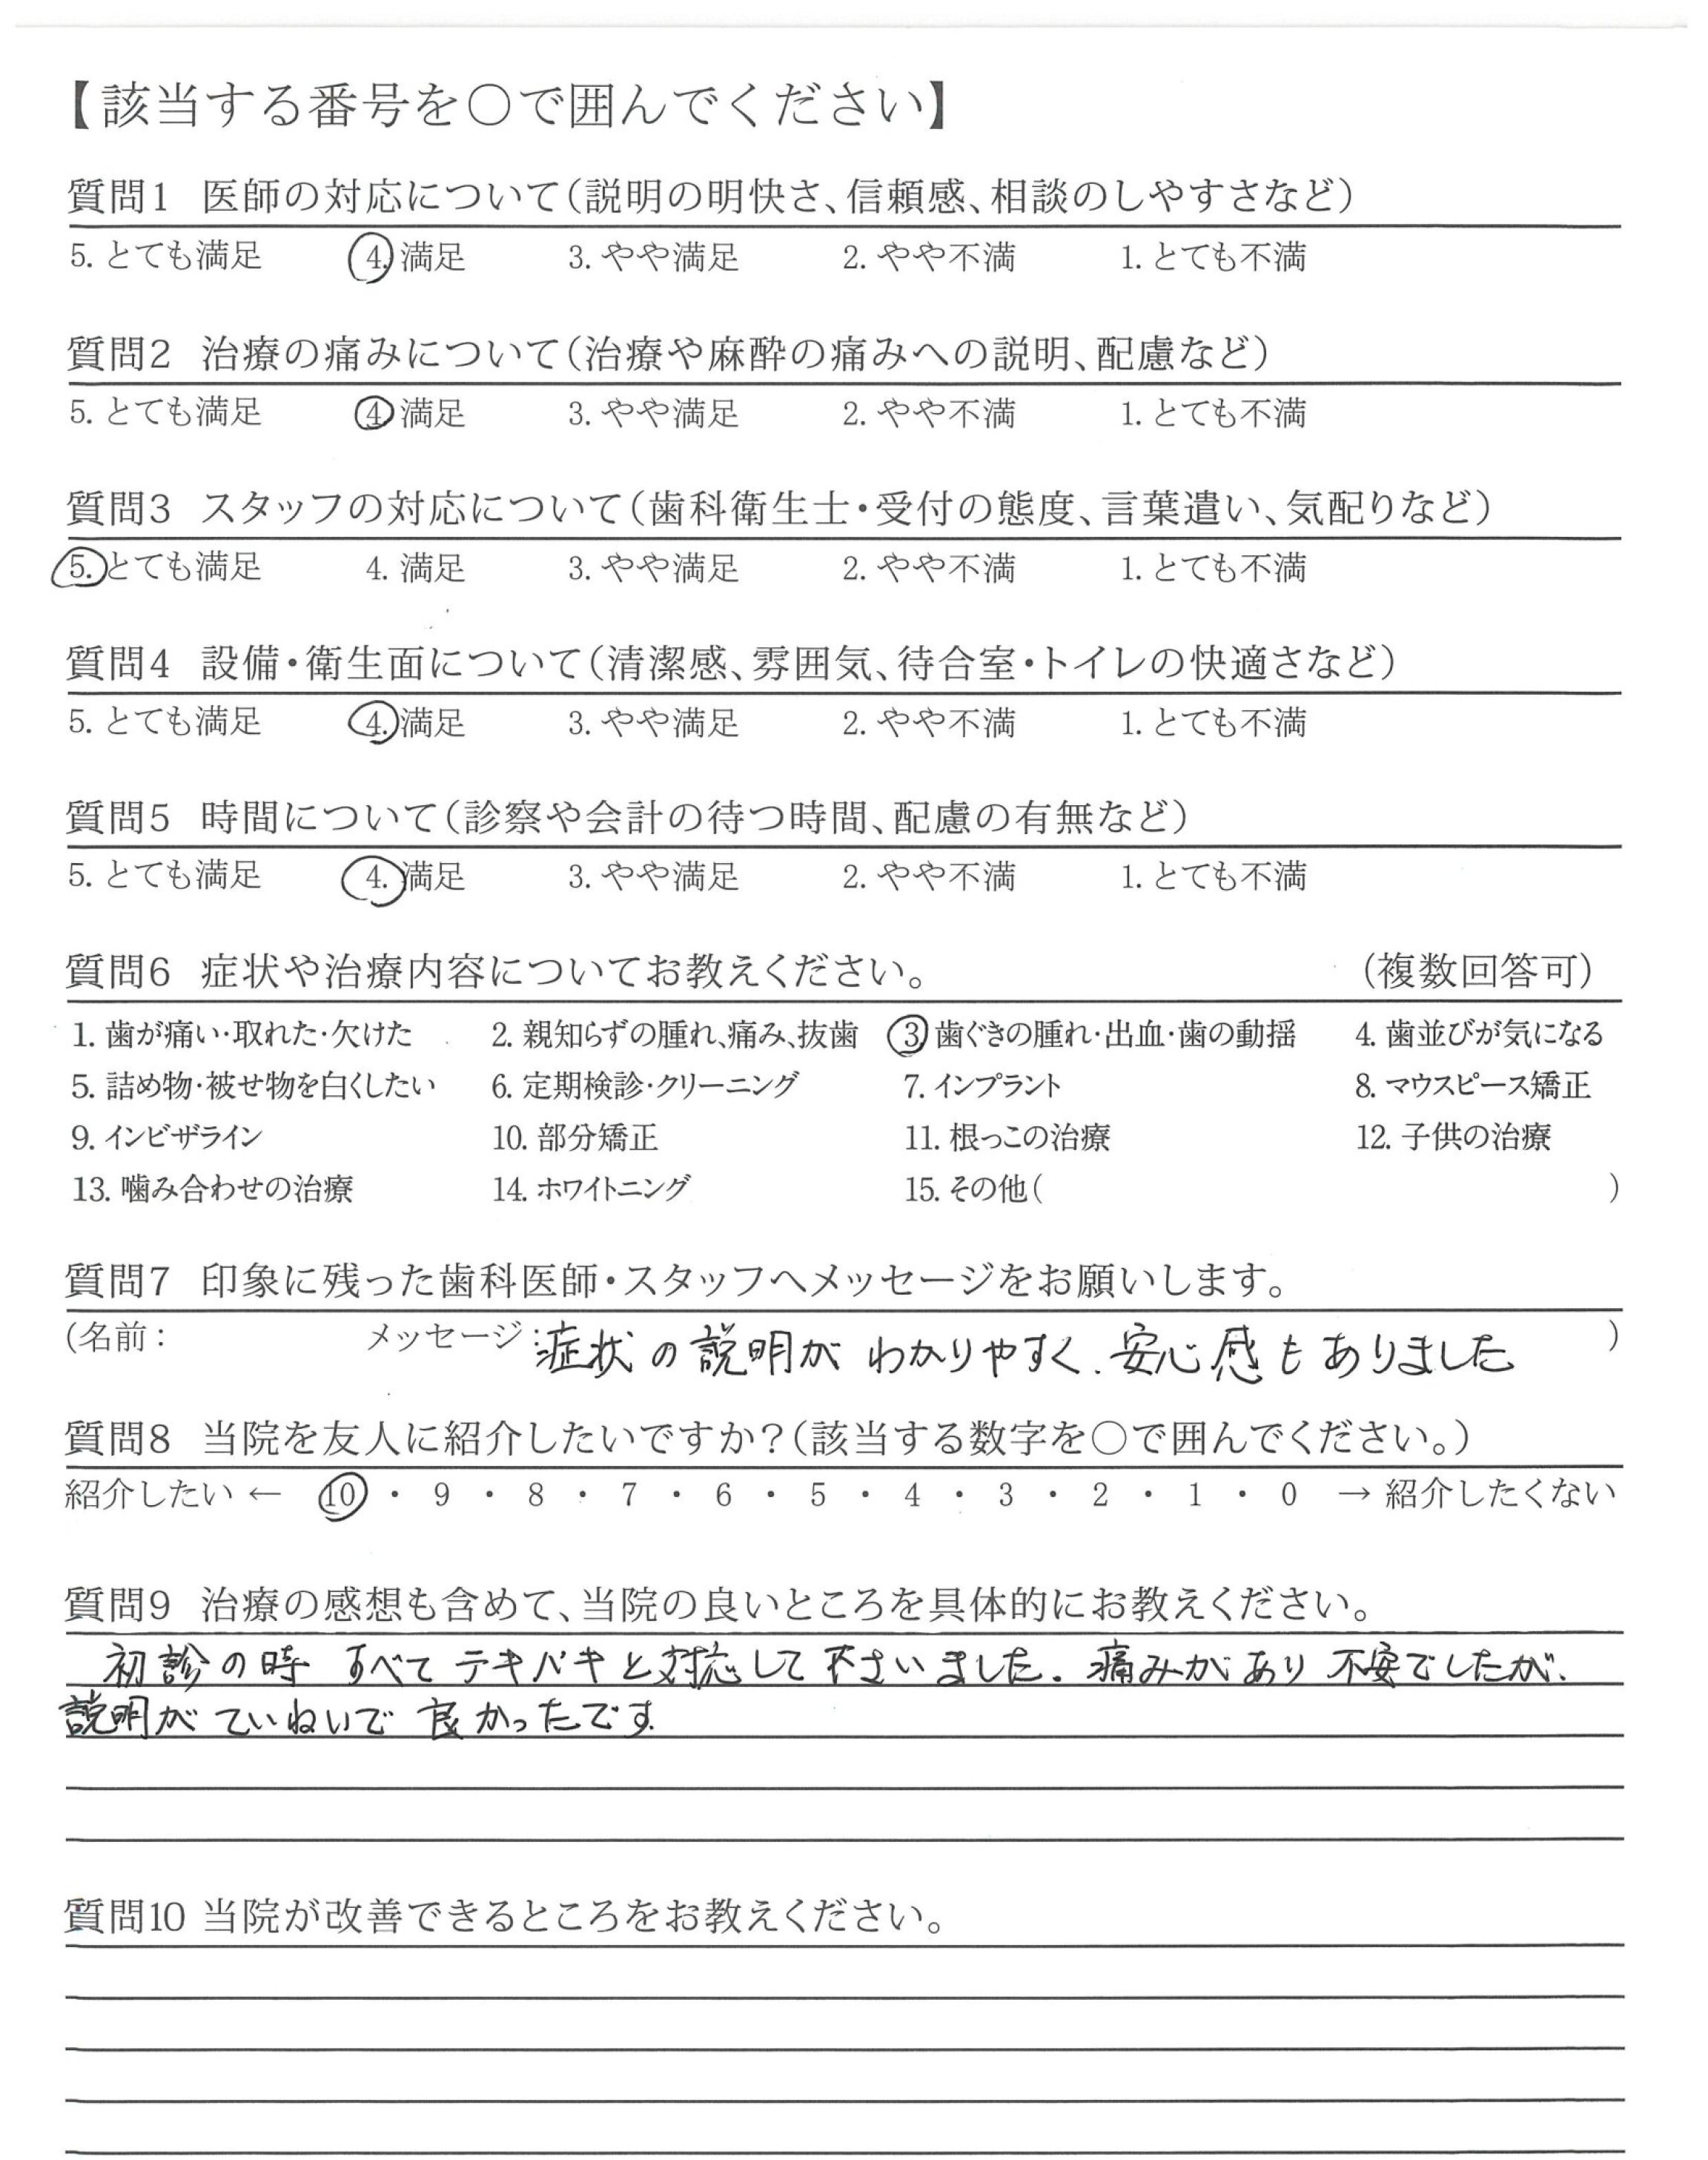 【該当する番号を〇で囲んでください】
質問1 医師の対応について(説明の明快さ、信頼感、相談のしやすさなど)
5. とても満足 4. 満足 3. やや満足 2. やや不満 1. とても不満
質問2 治療の痛みについて(治療や麻酔の痛みへの説明、配慮など)
5. とても満足 4. 満足 3. やや満足 2. やや不満 1. とても不満
質問3 スタッフの対応について(歯科衛生士・受付の態度、言葉遣い、気配りなど)
5. とても満足 4. 満足 3. やや満足 2. やや不満 1. とても不満
質問4 設備・衛生面について(清潔感、雰囲気、待合室・トイレの快適さなど)
5. とても満足 4. 満足 3. やや満足 2. やや不満 1. とても不満
質問5 時間について(診察や会計の待つ時間、配慮の有無など)
5. とても満足 4. 満足 3. やや満足 2. やや不満 1. とても不満
質問6 症状や治療内容についてお教えください。 (複数回答可)
1. 歯が痛い・取れた・欠けた 2. 親知らずの腫れ、痛み、抜歯 3 歯ぐきの腫れ・出血・歯の動揺 4. 歯並びが気になる
5. 詰め物・被せ物を白くしたい 6. 定期検診・クリーニング 7. インプラント 8. マウスピース矯正
9. インビザライン 10. 部分矯正 11. 根っこの治療 12. 子供の治療
13. 噛み合わせの治療 14. ホワイトニング 15. その他( )
質問7 印象に残った歯科医師・スタッフへメッセージをお願いします。
(名前: メッセージ:症状の説明がわかりやすく、安心感もありました )
質問8 当院を友人に紹介したいですか?(該当する数字を〇で囲んでください。)
紹介したい ← 10 ・ 9 ・ 8 ・ 7 ・ 6 ・ 5 ・ 4 ・ 3 ・ 2 ・ 1 ・ 0 → 紹介したくない
質問9 治療の感想も含めて、当院の良いところを具体的にお教えください。
初診の時 すべてテキパキと対応して下さいました。痛みがあり不安でしたが、
説明がていねいで良かったです
質問10 当院が改善できるところをお教えください。